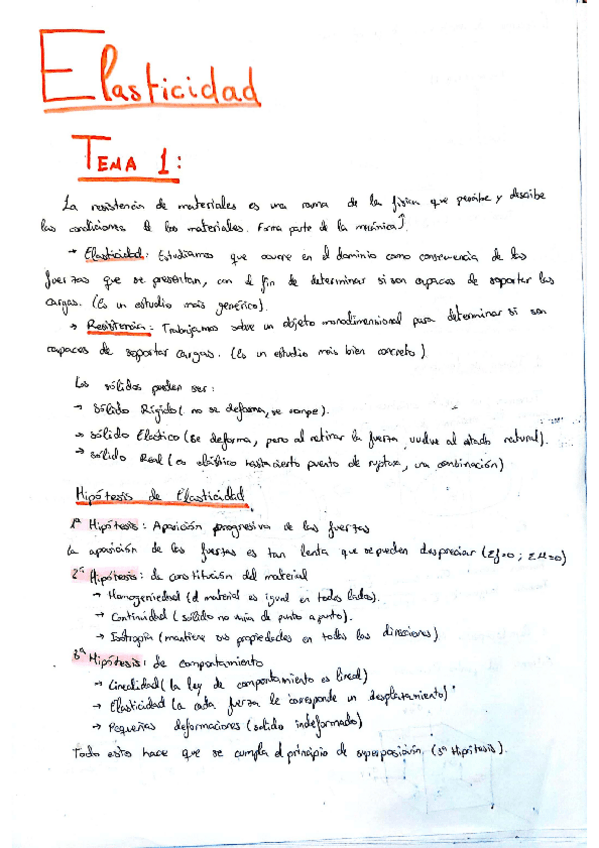 Elasticidad
TEMA 1:
La resistencia de materiales es una rama de la física que percibe y describe
las condiciones de los materiales. Forma parte de la mecánica.
→ Elasticidad: Estudiamos que ocurre en el dominio como consecuencia de las
fuerzas que se presentan, con el fin de determinar si son capaces de soportar las
cargas. (Es un estudio más genérico).
→ Resistencia: Trabajamos sobre un objeto monodimensional para determinar si son
capaces de soportar cargas. (Es un estudio más bien concreto)
Los sólidos pueden ser:
→ Sólido Rígido (no se deforma, se rompe).
→ sólido Elástico (se deforma, pero al retirar la fuerza vuelve al estado natural).
→ sólido Real (es elástico hasta cierto punto de ruptura, una combinación)
Hipótesis de Elasticidad
1ª Hipótesis: Aparición progresiva de las fuerzas
la aparición de las fuerzas es tan lenta que se pueden despreciar (Σf=0; ΣM=0)
2ª Hipótesis: de constitución del material
→ Homogeniedad (el material es igual en todos lados).
→ Continuidad (sólido no varía de punto a punto).
→ Isotropía (mantiene sus propiedades en todas las direcciones)
3ª Hipótesis: de comportamiento
→ Linealidad (la ley de comportamiento es lineal)
→ Elasticidad (a cada fuerza le corresponde un desplazamiento)
→ Pequeñas deformaciones (solido indeformado)
Todo esto hace que se cumpla el principio de superposición. (3ª Hipótesis).